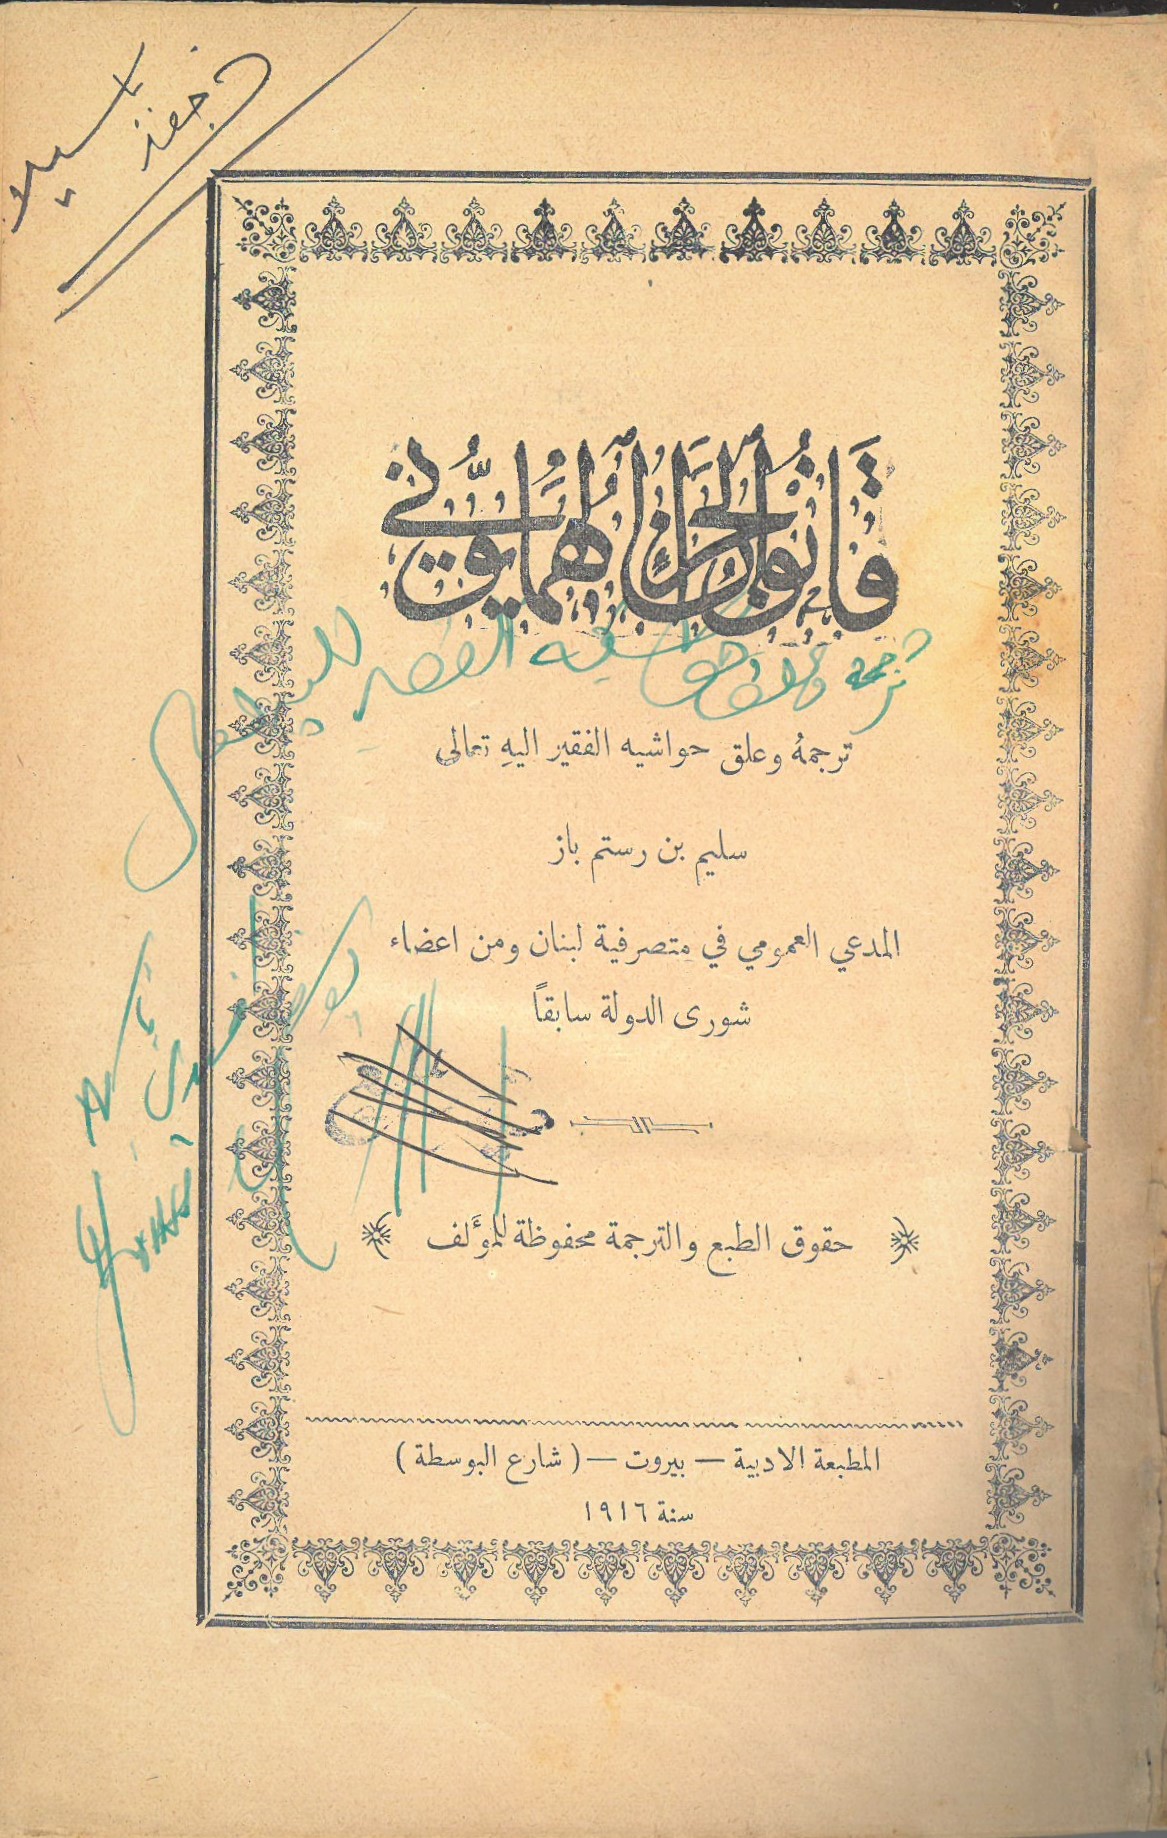 قَانُونُ الجَزَاء الهُمَايُوني
ترجمة وعلق حواشيه الفقير اليه تعالى
ترجمهُ وعلق حواشيه الفقير اليهِ تعالى
سليم بن رستم باز
المدعي العمومي في متصرفية لبنان ومن اعضاء
شورى الدولة سابقاً
حقوق الطبع والترجمة محفوظة للمؤَلف
المطبعة الادبية — بيروت — ( شارع البوسطة )
سنة ١٩١٦